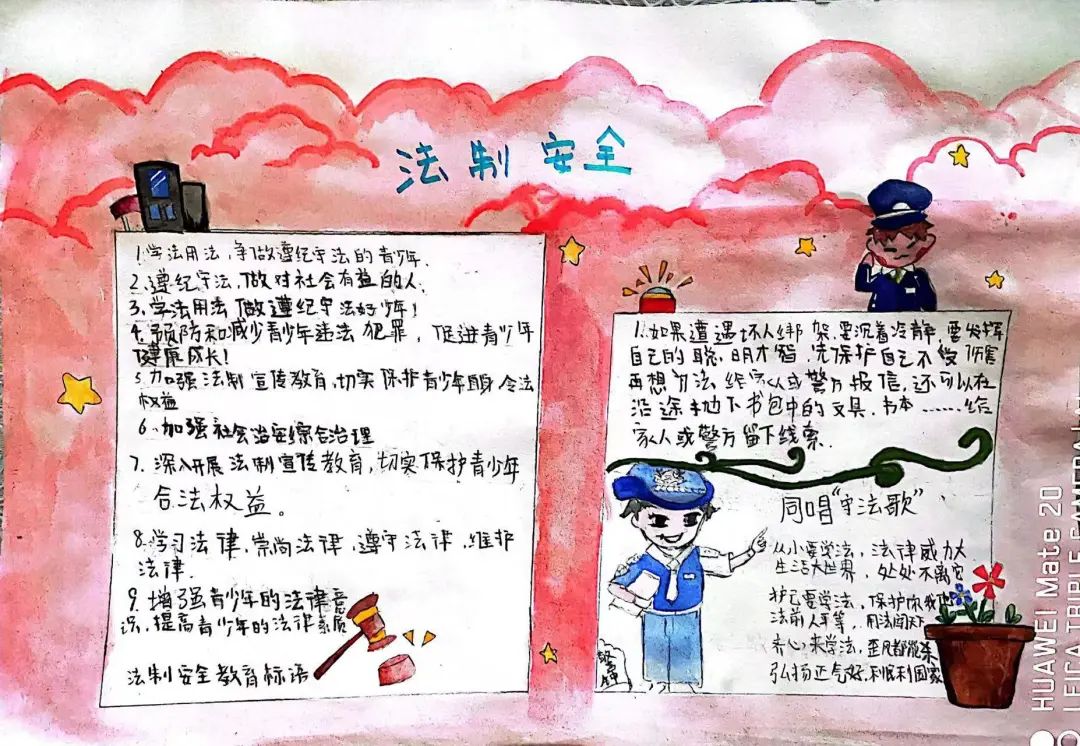 法制安全
1.学法用法,争做遵纪守法的青少年.
2.遵纪守法,做对社会有益的人.
3.学法用法做遵纪守法好少年!
4.预防和减少青少年违法犯罪,促进青少年
健康成长!
5.加强法制宣传教育,切实保护青少年自身合法
权益
6.加强社会治安综合治理
7.深入开展法制宣传教育,切实保护青少年
合法权益。
8.学习法律,崇尚法律,遵守法律,维护
法律.
9.增强青少年的法律意
识,提高青少年的法律素质
法制安全教育标语
1.如果遭遇坏人绑架,要沉着冷静,要发挥
自己的聪明才智,先保护自己不受伤害
再想办法给家人或警方报信,还可以在
沿途地下书包中的文具.书本……给
家人或警方留下线索.
同唱"守法歌"
从小要学法,法律威力大
生活大世界,处处不离它
护己要学法,保护你我他
法前人平等,用法闯天下
齐心来学法,歪风都能杀
弘扬正气好,利民利国家
警钟
HUAWEI Mate 20
LEICA TRIPLE CAMERA